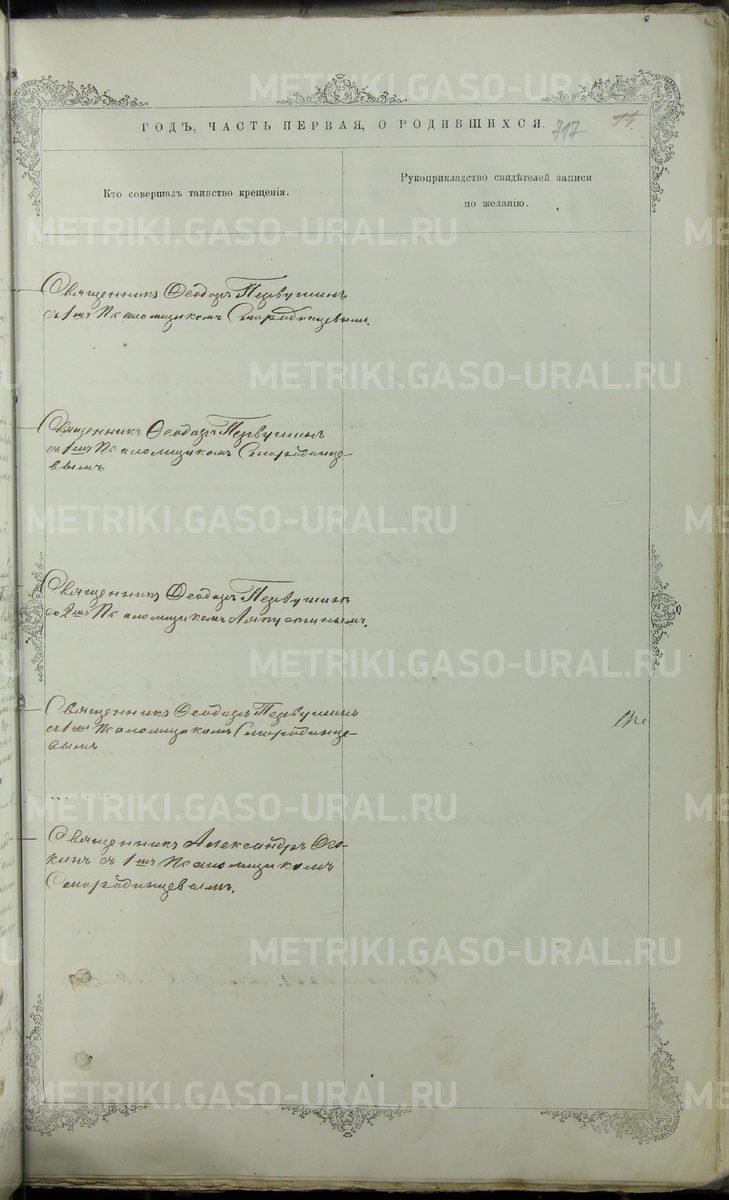 METRIKI.GASO-URAL.RU METRIKI.GASO-URAL.RU
ГОДЪ, ЧАСТЬ ПЕРВАЯ, О РОДИВШИХСЯ. 717 11.
Кто совершалъ таинство крещенія.
Рукоприкладство свидѣтелей записи
по желанію.
METRIKI.GASO-URAL.RU
Священникъ Ѳеодоръ Первушинъ
съ 1мъ Псаломщикомъ Смородинцевымъ.
METRIKI.GASO-URAL.RU
Священникъ Ѳеодоръ Первушинъ
съ 1мъ Псаломщикомъ Смородинце-
вымъ
METRIKI.GASO-URAL.RU
Священникъ Ѳеодоръ Первушинъ
со 2мъ Псаломщикомъ Ляпустинымъ.
METRIKI.GASO-URAL.RU
Священникъ Ѳеодоръ Первушинъ
съ 1мъ Псаломщикомъ Смородинце-
вымъ
METRIKI.GASO-URAL.RU
Священникъ Александръ
съ 1мъ Псаломщикомъ
Смородинцевымъ.
METRIKI.GASO-URAL.RU
METRIKI.GASO-URAL.RU